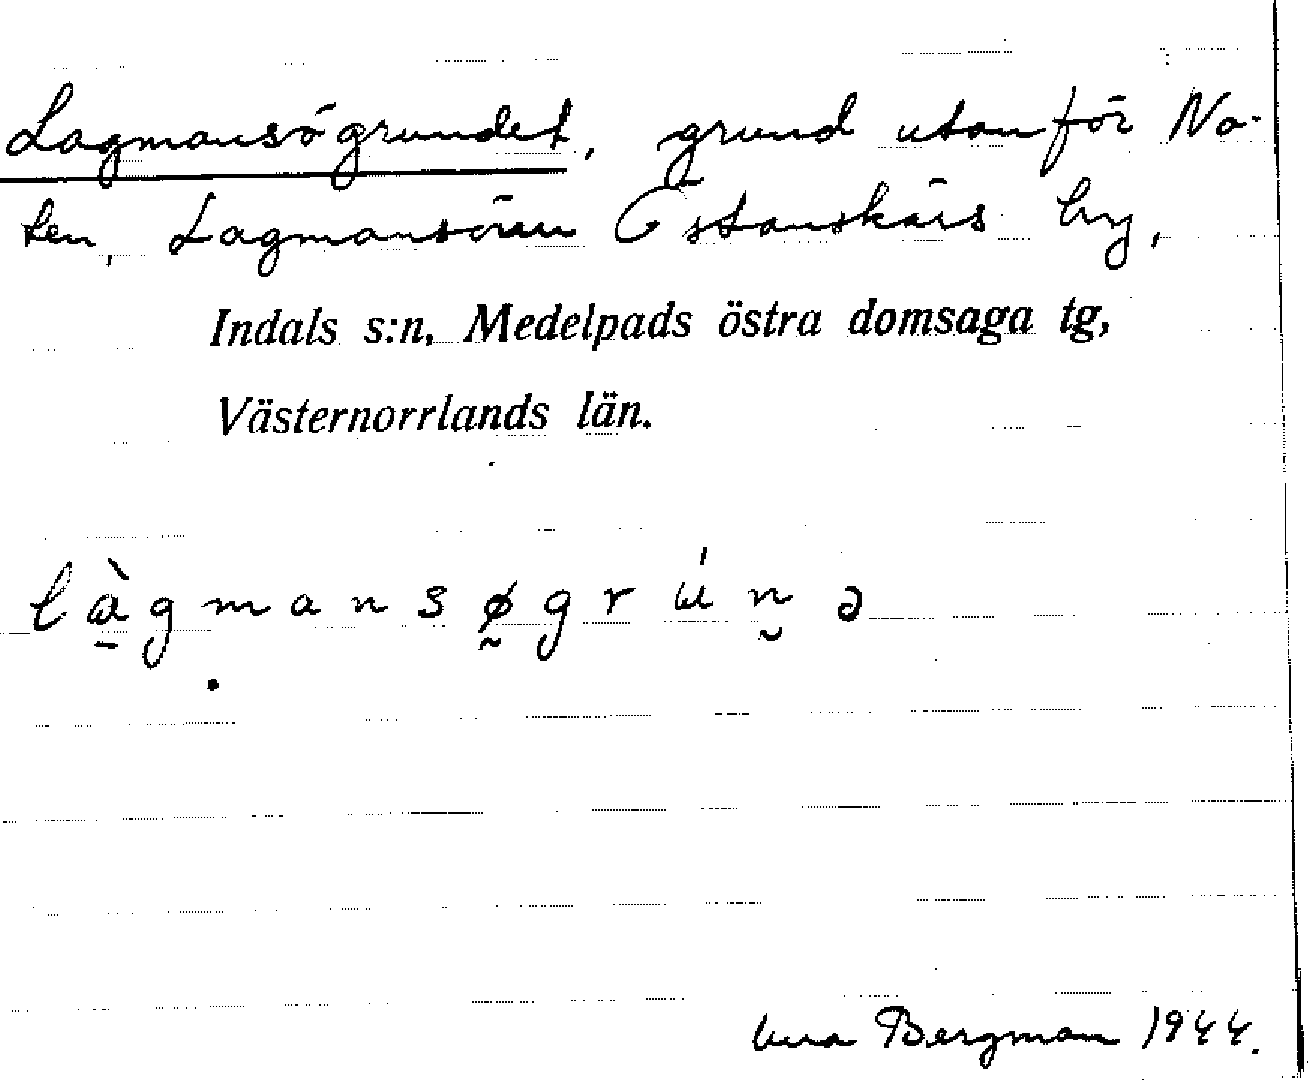 Lagmansögrundet, grund utanför No-
ten, Lagmansören Östanskärs by,
Indals s:n, Medelpads östra domsaga tg,
Västernorrlands län.
là̱gmansø̰grún̮ə
Bergman 1944.